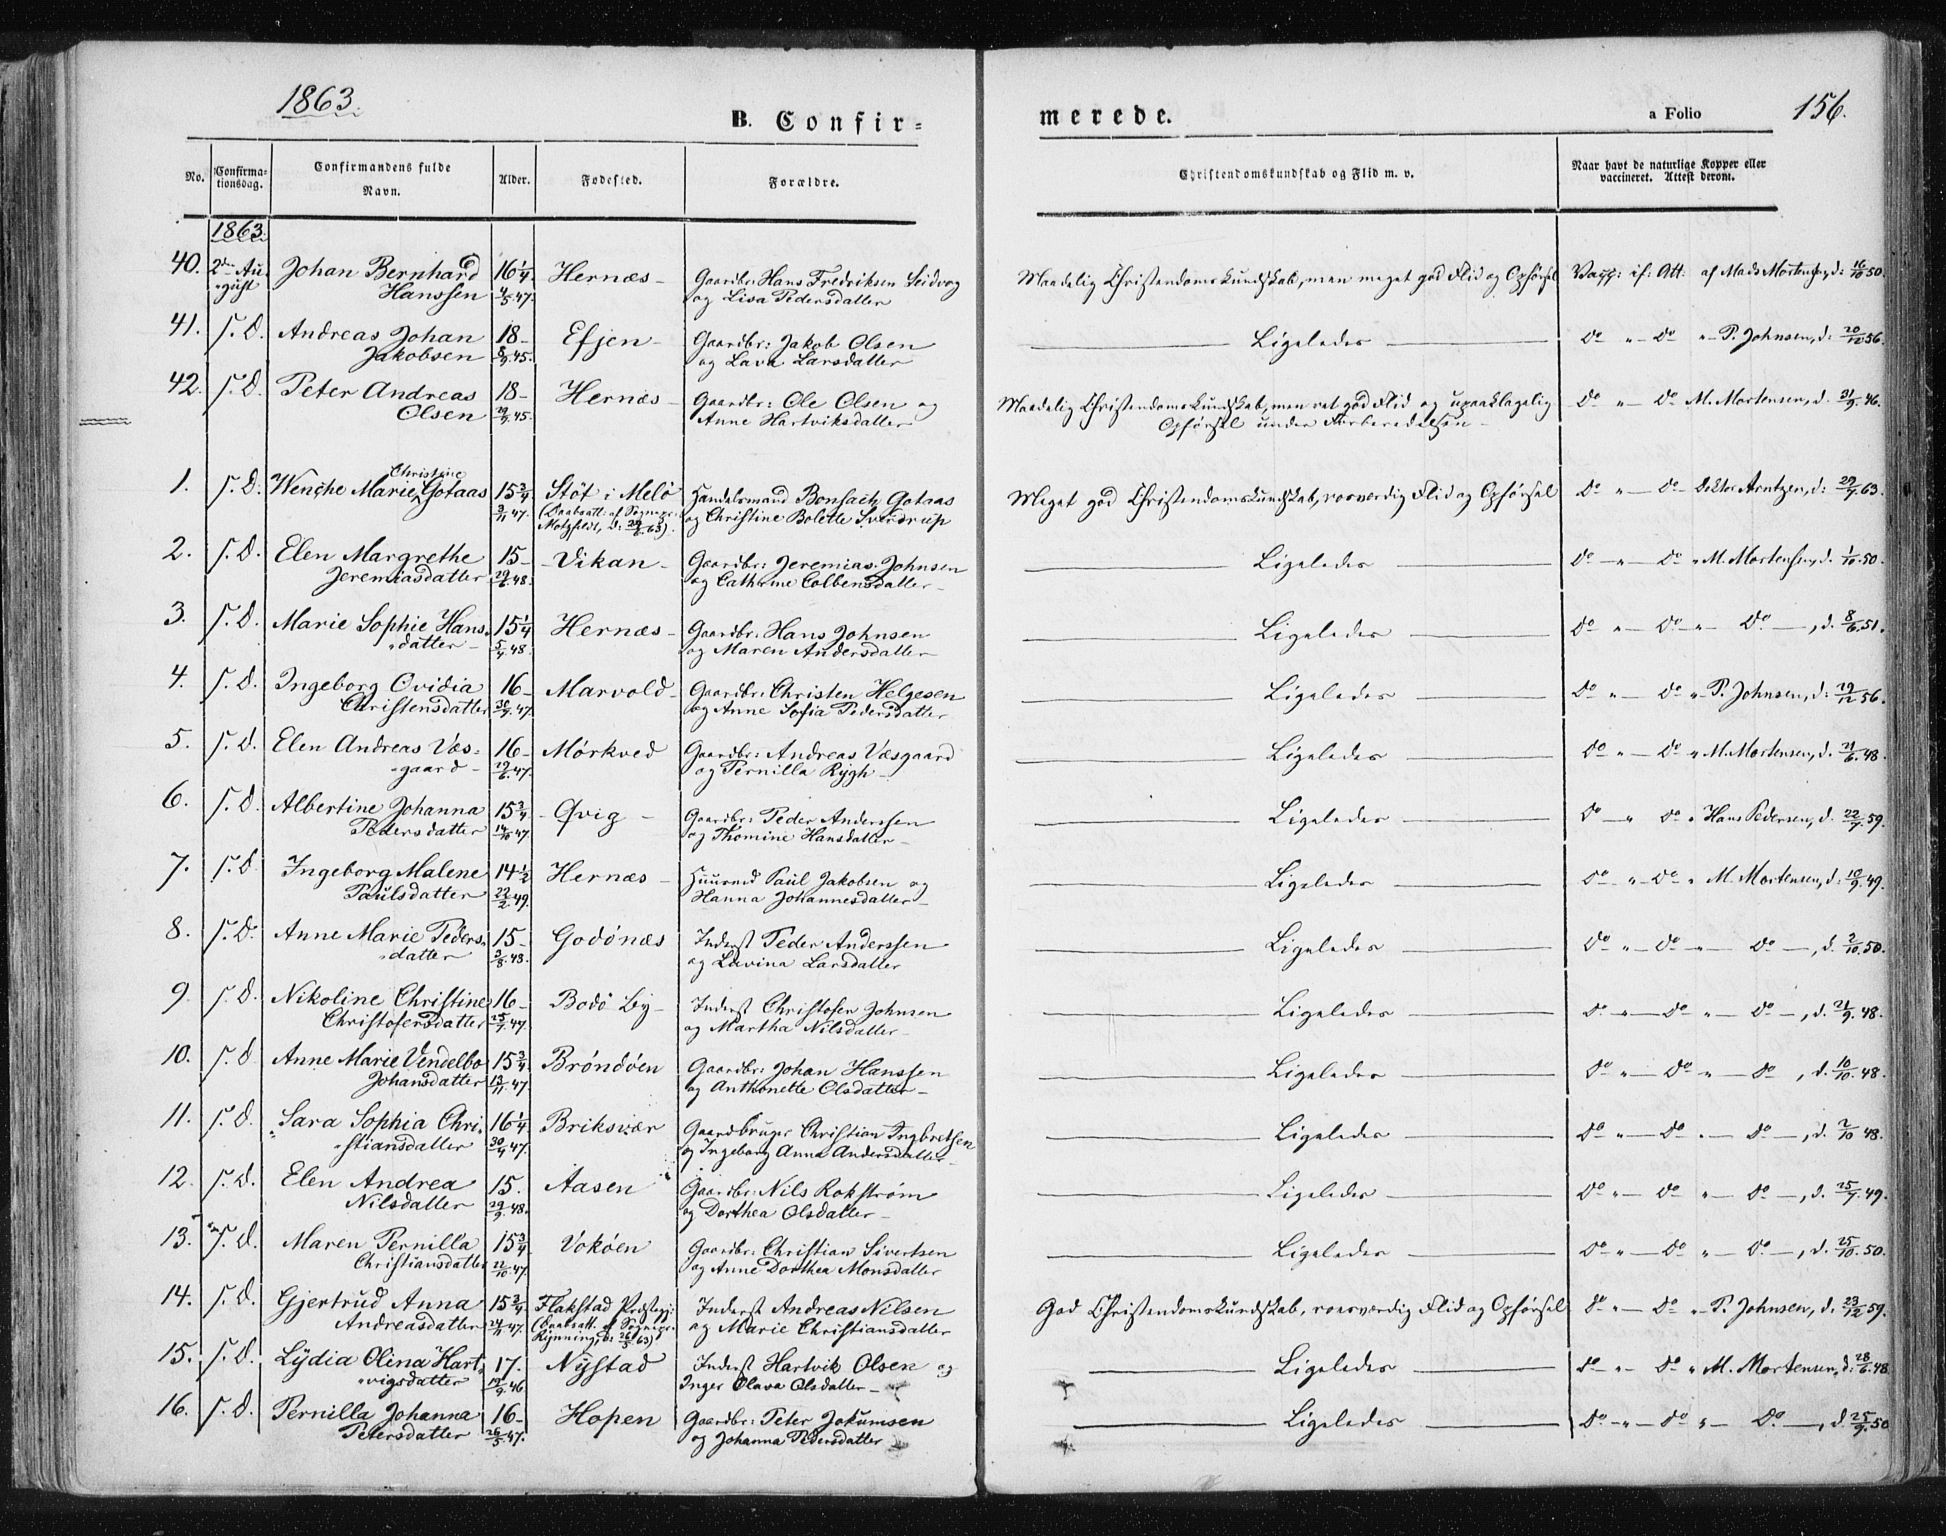 1863.
B. Confir=
merede.
a Folio 156.
No. Confirmationsdag. Confirmandens fulde Navn. Alder. Fødested. Forældre. Christendomskundskab og Flid m. v. Naar havt de naturlige Kopper eller vaccineret. Attest derom.
1863.
40. 2den Au- Johan Bernhard 16¼. Hernæs - Gaardbr: Hans Fredriksen Seidvog Maadelig Christendomskundskab, men meget god Flid og Opførsel Vacc: if: Att: af Mads Mortensen, d: 16/10 50.
"gust Hanssen 4/5 47. og Lisa Pedersdatter
41. s. D. Andreas Johan 18- Efjen- Gaardbr: Jakob Olsen Ligeledes do " do " P. Johnsen, d: 20/12 56.
Jakobsen 45. og Lava Larsdatter
42. s. D. Peter Andreas 18- Hernæs- Gaardbr: Ole Olsen og Maadelig Christendomskundskab, men ret god Flid og upaaklagelig do " do M. Mortensen, d. 21/9 46.
Olsen 45. Anne Hartviksdatter Opførsel under Forberedelsen -
Christine
1. s. D. Wenche Marie Gotaas 15¾ Støt i Melø Handelsmand Bonsach Gotaas Meget god Christendomskundskab, roesværdig Flid og Opførsel do " do Doktor Arntzen, d: 29/7 63.
3/11 47. (Daabsatt. af Sognepr: og Christine Bolette Sverdrup
Motzfeldt, d: 63).
2. s. D. Elen Margrethe 15- -Vikan- Gaardbr: Jeremias Johnsen Ligeledes do " do " M. Mortensen, d. 1/10 50.
Jeremiasdatter 29/6 48. og Cathrine Colbensdatter-
3. s. D. Marie Sophie Hans- 15¼ Hernæs- Gaardbr: Hans Johnsen Ligeledes do " do " do, d. 8/6 51.
"datter- 5/4 48. og Maren Andersdatter-
4. s. D. Ingeborg Ovidia 16- Marvold- Gaardbr: Christen Helgesen Ligeledes do " do " P. Johnsen, d: 29/12 56.
Christensdatter 30/7 47. og Anne Sofia Pedersdatter
5. s. D. Elen Andreas Væs- 16- Mørkved Gaardbr: Andreas Væsgaard Ligeledes do " do " M. Mortensen, d. 21/6 48.
"gaard- 29/6 47. og Pernilla Rygh-
6. s. D. Albertine Johanna 15¾ - Qvig - Gaardbr: Peder Anderssen Ligeledes do " do " Hans Pedersen, d. 22/7 59.
Pedersdatter 14/10 47. og Thomine Hansdatter-
7. s. D. Ingeborg Malene 14½ Hernæs- Huusmd Paul Jakobsen og Ligeledes do " do " M. Mortensen, d: 10/9 49.
Paulsdatter 22/2 49. Hanna Johannesdatter-
8. s. D. Anne Marie Peders- 15- Godønæs Inderst Peder Anderssen Ligeledes do " do " do, d. 2/10 50.
"datter 3/8 48. og Lavina Larsdatter
9. s. D. Nikoline Christine 16- Bodø By- Inderst Christofer Johnsen Ligeledes do " do " do, d. 21/9 48.
Christofersdatter 25/7 47. og Martha Nilsdatter-
10. s. D. Anne Marie Vendelbo 15¾ Brøndøen Gaardbr: Johan Hanssen Ligeledes do " do " do, d. 10/10 48.
Johansdatter 13/11 47. og Anthonette Olsdatter-
11. s. D. Sara Sophia Chri- 16¼ Briksvær Gaardbruger Christian Ingbretsen Ligeledes do " do " do, d. 7/10 48.
"stiansdatter 30/4 47. og Ingeborg Anna Andersdatter-
12. s. D. Elen Andrea 15. Aasen Gaardbr: Nils Rokstrøm Ligeledes do " do " do, d. 25/7 49.
Nilsdatter 29/9 48. og Dorthea Olsdatter-
13. s. D. Maren Pernilla 15¾ Vokøen Gaardbr: Christian Sivertsen Ligeledes do " do " do, d. 25/10 50.
Christiansdatter 22/10 47. og Anne Dorthea Monsdatter
14. s. D. Gjertrud Anna 15¾. Flakstad Præstegj: Inderst Andreas Nilsen God Christendomskundskab, roesværdig Flid og Opførsel do " do " P. Johnsen, d: 23/12 59.
Andreasdatter 24/11 47. (Daabsatt. af Sognepr. og Marie Christiansdatter
Rynning, d: 26/5 63)
15. s. D. Lydia Olina Hart- 17. Nystad Inderst Hartvik Olsen og Ligeledes do " do " M. Mortensen, d: 28/6 48.
"vigsdatter 46 Inger Olava Olsdatter-
16. s. D. Pernilla Johanna 16- Hopen Gaardbr: Peter Jokumsen Ligeledes do " do " do, d. 25/9 50
Petersdatter 26/5 47. og Johanna Pedersdatter